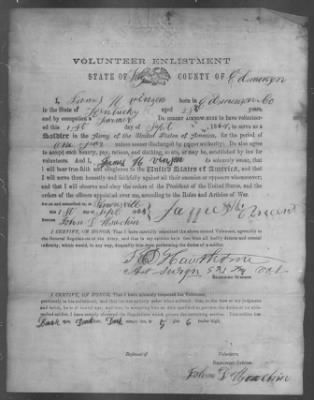 VOLUNTEER ENLISTMENT
STATE OF Ky COUNTY OF Edmonson
I, James H Vinson born in Edmonson Co
in the State of Kentucky aged years,
and by occupation a Farmer Do HEREBY ACKNOWLEDGE to have volunteered
this 1st day of Sept 1864, to serve as a
Soldier in the Army of the United States of America, for the period of
one year unless sooner discharged by proper authority: Do also agree
to accept such bounty, pay, rations, and clothing, as are, or may be, established by law for
volunteers. And I, James H Vinson do solemnly swear, that
I will bear true faith and allegiance to the United States of America, and that
I will serve them honestly and faithfully against all their enemies or opposers whomsoever;
and that I will observe and obey the orders of the President of the United States, and the
orders of the officers appointed over me, according to the Rules and Articles of War.
Sworn and subscribed to, at Brownsville
this 1st day of Sept 1864
BEFORE John D Houchin
I CERTIFY, ON HONOR, That I have carefully examined the above named Volunteer, agreeably to
the General Regulations of the Army, and that in my opinion he is free from all bodily defects and mental
infirmity, which would, in any way, disqualify him from performing the duties of a soldier.
Hawthorne
Ast Surgn 52 Ky
EXAMINING SURGEON
I CERTIFY, ON HONOR, That I have minutely inspected the Volunteer,
previously to his enlistment, and that he was entirely sober when enlisted; that, to the best of my judgment
and belief, he is of lawful age; and that, in accepting him as duly qualified to perform the duties of an able-bodied
soldier, I have strictly observed the Regulations which govern the recruiting service. This soldier has
Dark eyes, Dark hair, Dark complexion, is 5 feet 6 inches high.
Regiment of Volunteers,
RECRUITING OFFICER
John D Houchin